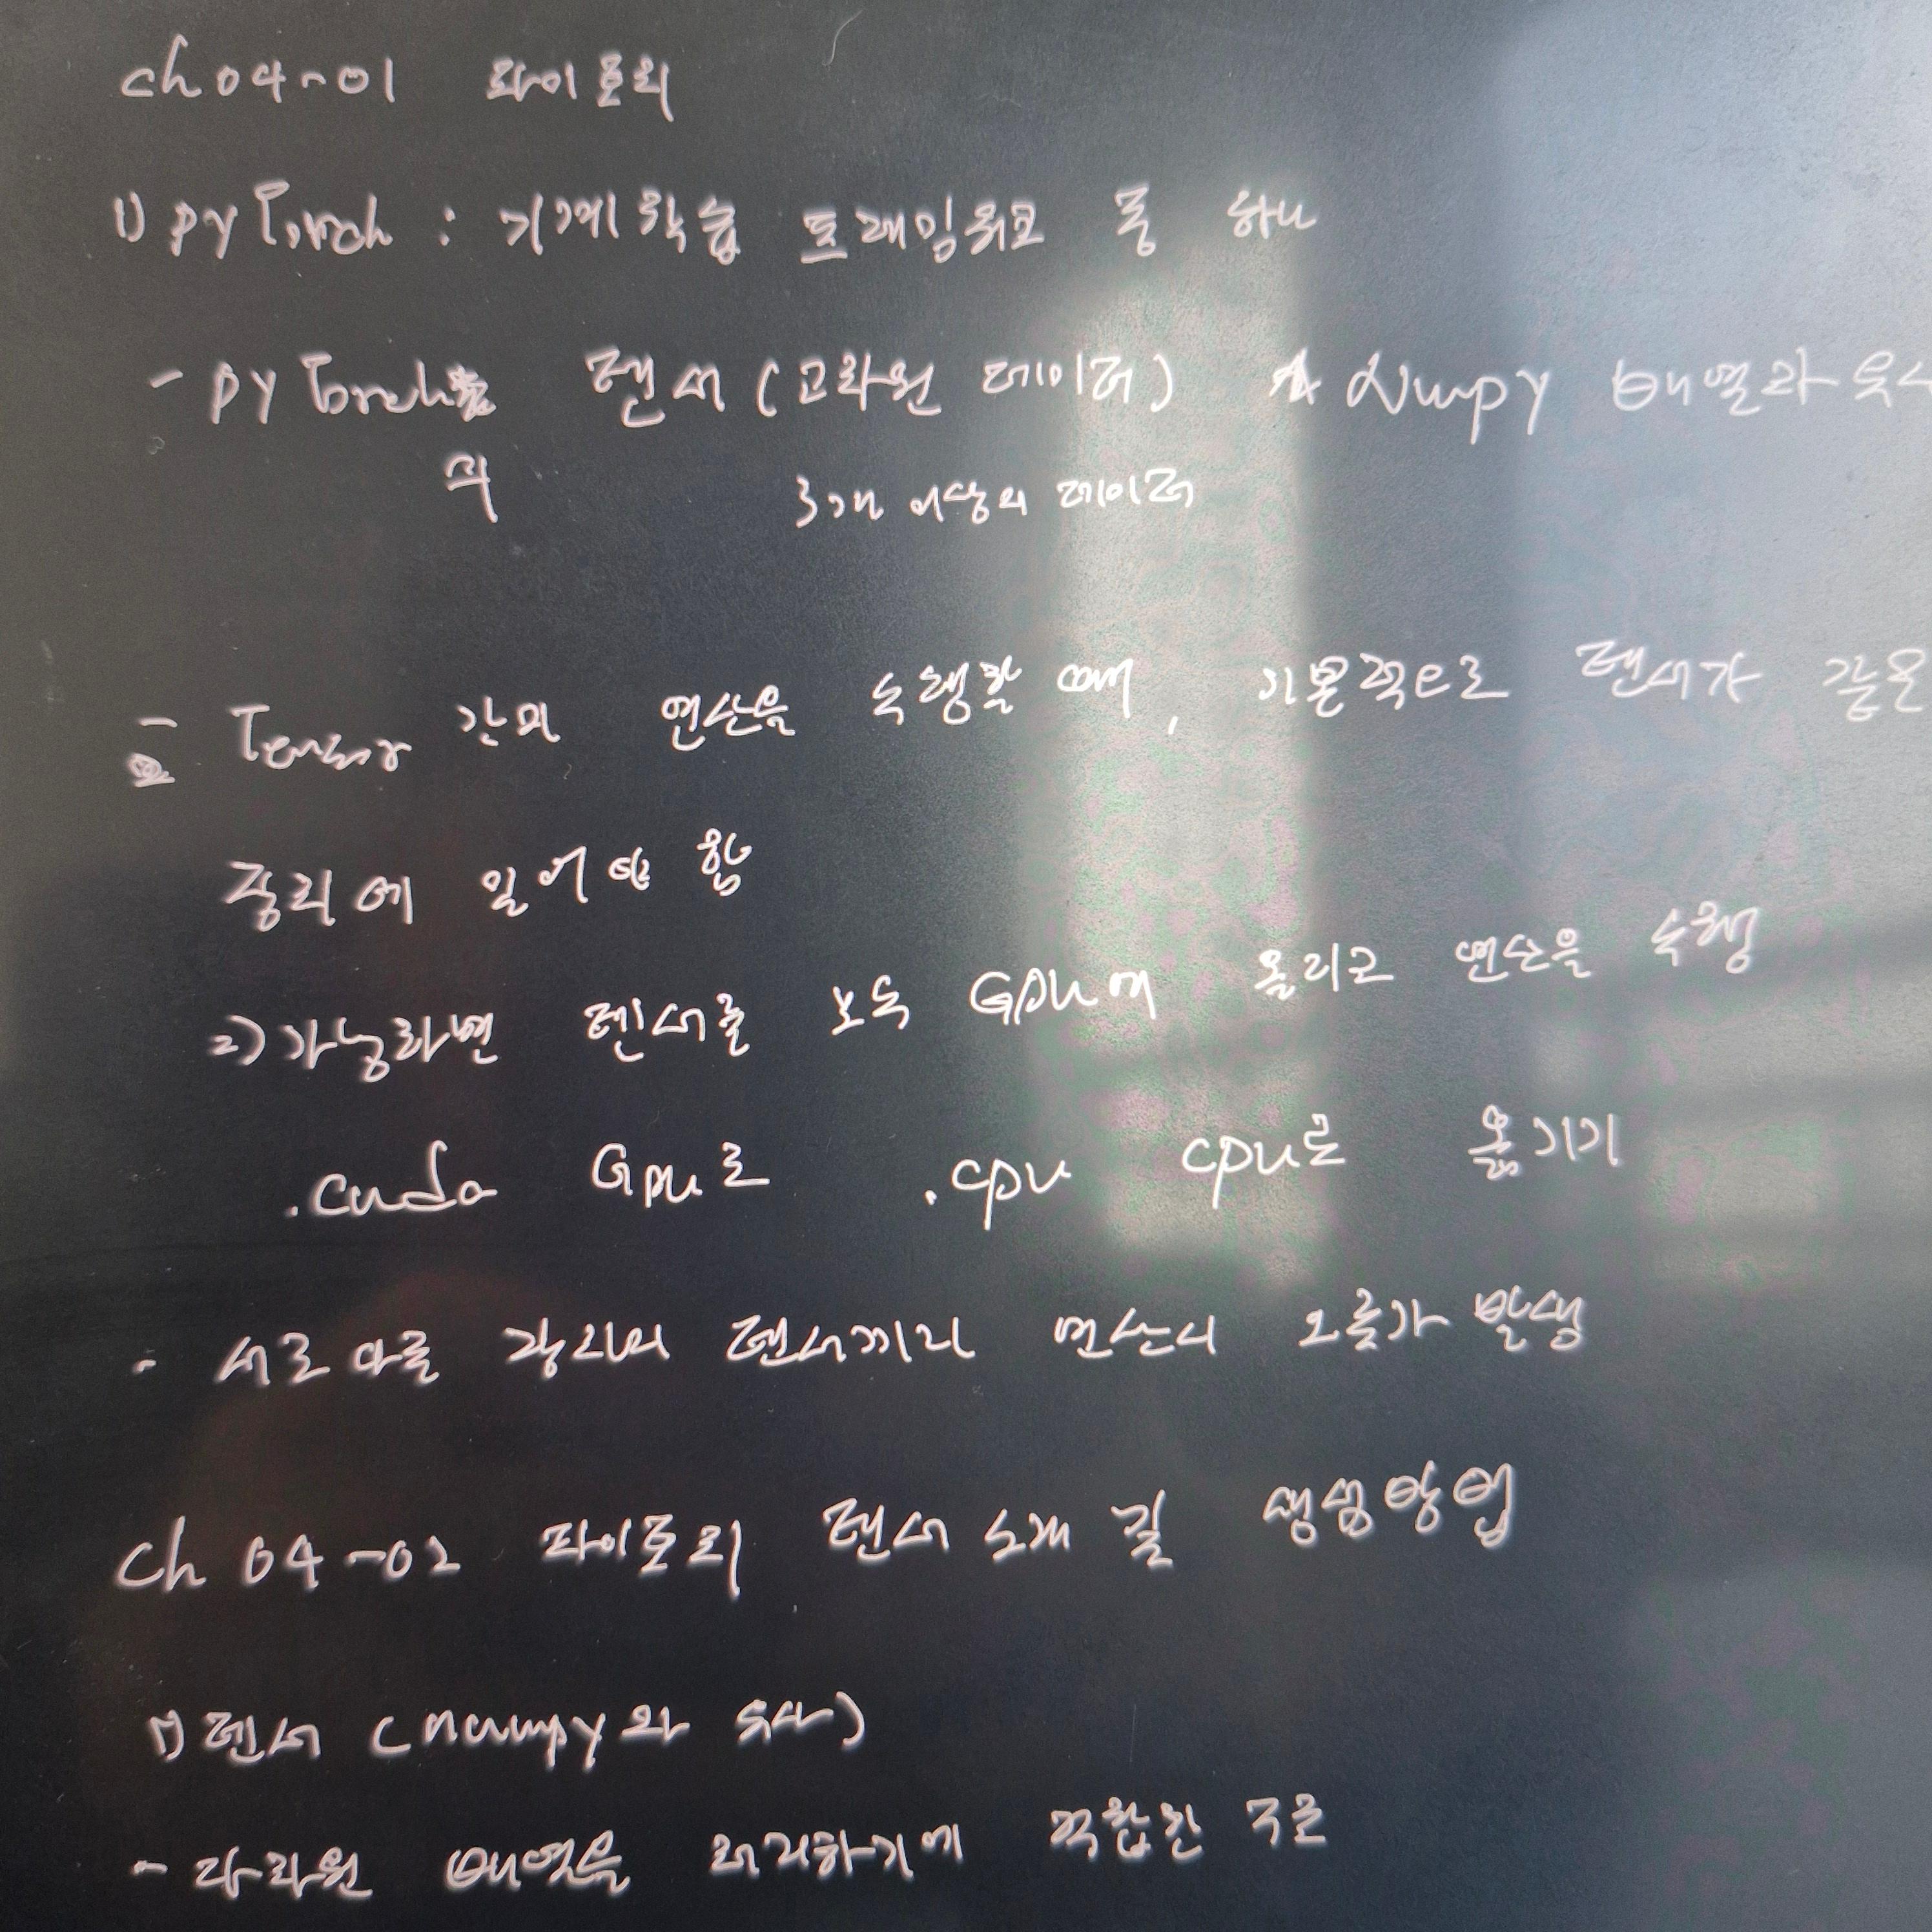 ch 04-01 파이토치
1) pyTorch : 기계학습 프레임워크 중 하나
- pyTorch 텐서 (고차원 데이터) Numpy 배열과 유사
의 3개 이상의 데이터
- Tensor 간의 연산을 수행할 때, 기본적으로 텐서가 같은
장치에 있어야 함
=> 가능하면 텐서를 모두 GPU에 올리고 연산을 수행
.cuda Gpu로 .cpu cpu로 옮기기
- 서로 다른 장치의 텐서끼리 연산시 오류가 발생
Ch 04-02 파이토치 텐서 소개 및 생성방법
1) 텐서 (numpy와 유사)
- 다차원 배열을 처리하기에 적합한 구조